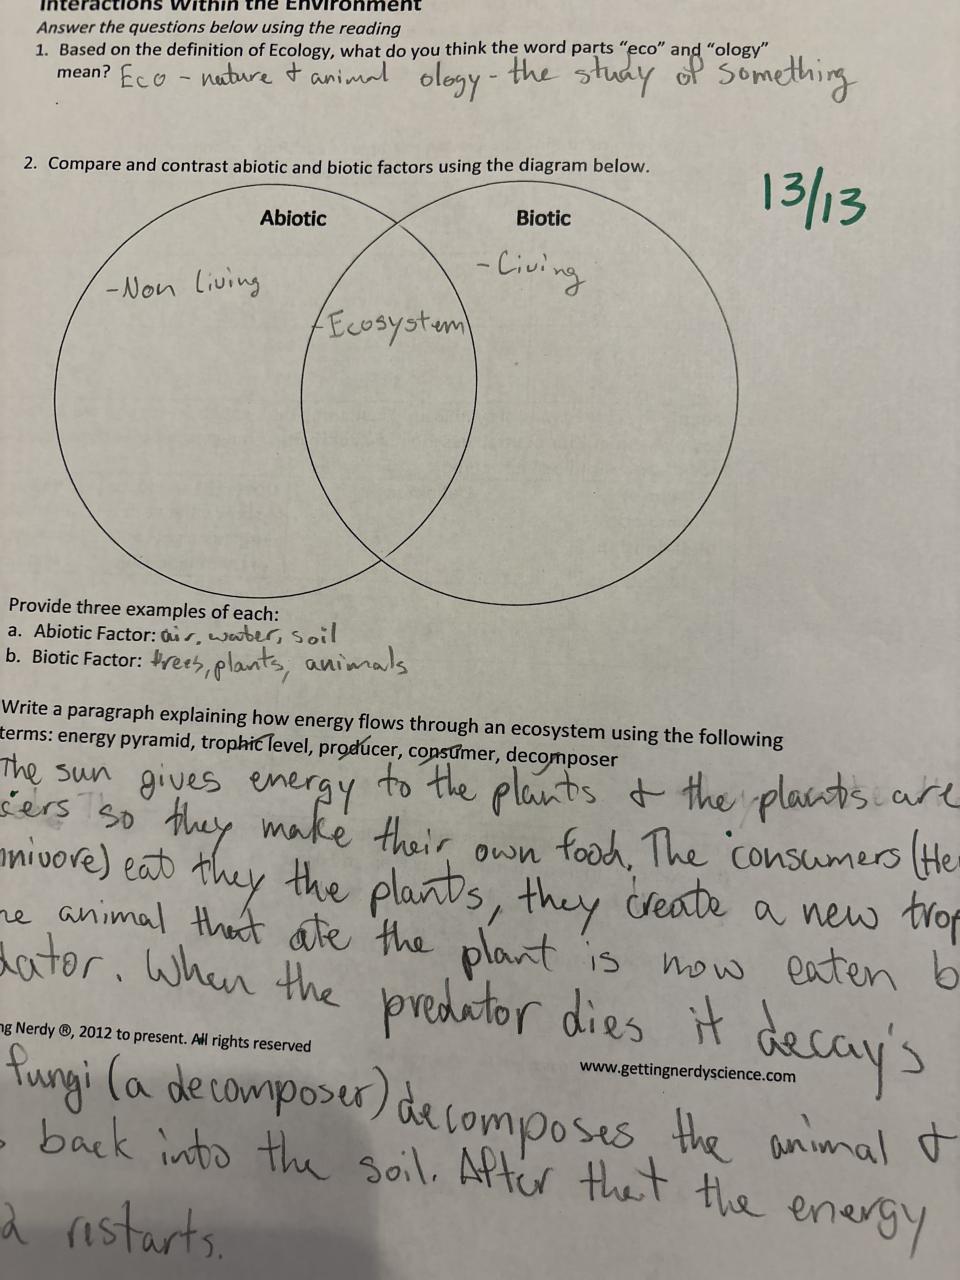 Interactions Within the Environment
Answer the questions below using the reading
1. Based on the definition of Ecology, what do you think the word parts “eco” and “ology”
mean? Eco - nature + animal ology - the study of something
2. Compare and contrast abiotic and biotic factors using the diagram below.
13/13
Abiotic
Biotic
- Living
- Non living
- Ecosystem
Provide three examples of each:
a. Abiotic Factor: air, water, soil
b. Biotic Factor: trees, plants, animals
Write a paragraph explaining how energy flows through an ecosystem using the following
terms: energy pyramid, trophic level, producer, consumer, decomposer
The sun gives energy to the plants + the plants are
cers so they make their own food. The consumers (He
mnivore) eat they the plants, they create a new trop
he animal that ate the plant is now eaten b
dator. When the predator dies it decay's
ng Nerdy ®, 2012 to present. All rights reserved
www.gettingnerdyscience.com
fungi (a decomposer) decomposes the animal +
back into the soil. After that the energy
restarts.